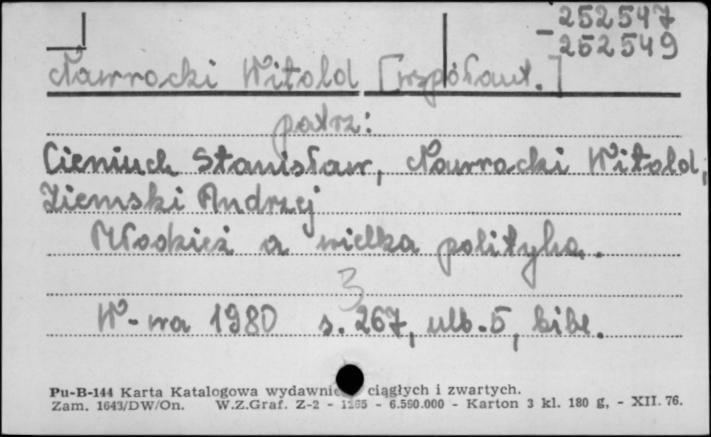 -252547
-252549
Nawrocki Witold [współaut.]
patrz:
Cieniuch Stanisław, Nawrocki Witold,
Ziemski Andrzej
Młodzież a wielka polityka.
3
W-wa 1980 s. 267, ulb. 5, bibl.
Pu-B-144 Karta Katalogowa wydawnic ciągłych i zwartych.
Zam. 1643/DW/On. W.Z.Graf. Z-2 - 1265 - 6.590.000 - Karton 3 kl. 180 g, - XII. 76.